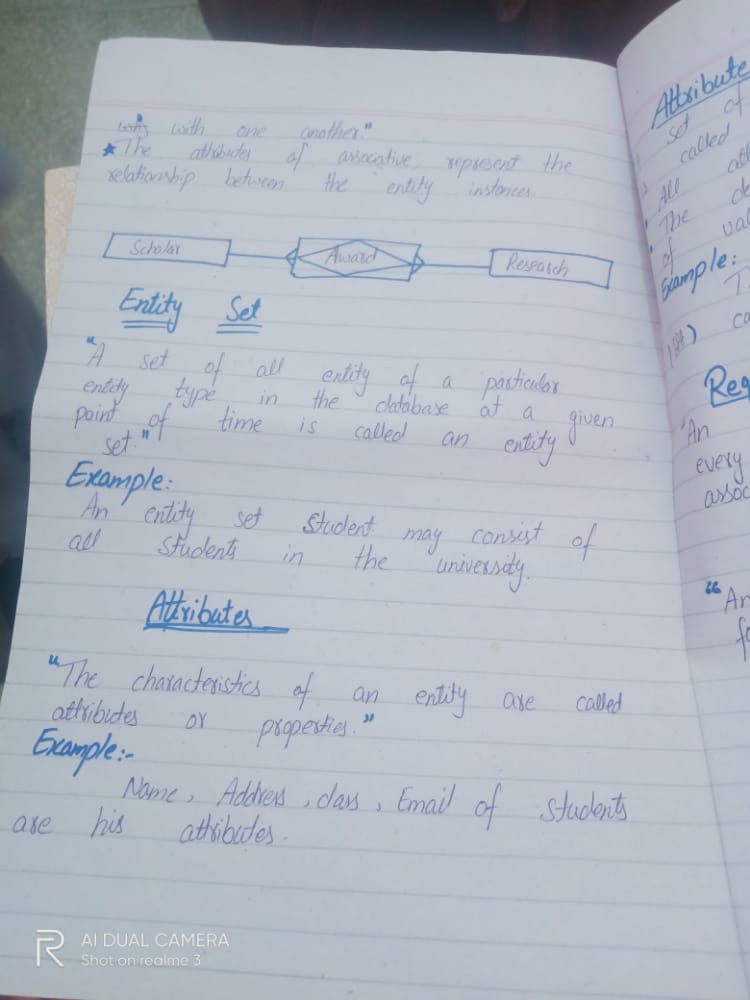 with one another."
★ The attributes of associative represent the
relationship between the entity instances.
Scholar
Award
Research
Entity Set
"A set of all entity of a particular
entity type in the database at a given
point of time is called an entity
set."
Example:
An entity set student may consist of
all students in the university.
Attributes
"The characteristics of an entity are called
attributes or properties."
Example:-
Name, Address, class, Email of students
are his attributes.
Attribute
set of
called
All
The
of
Example:
Req
"An
every
assoc
"An
AI DUAL CAMERA
Shot on realme 3